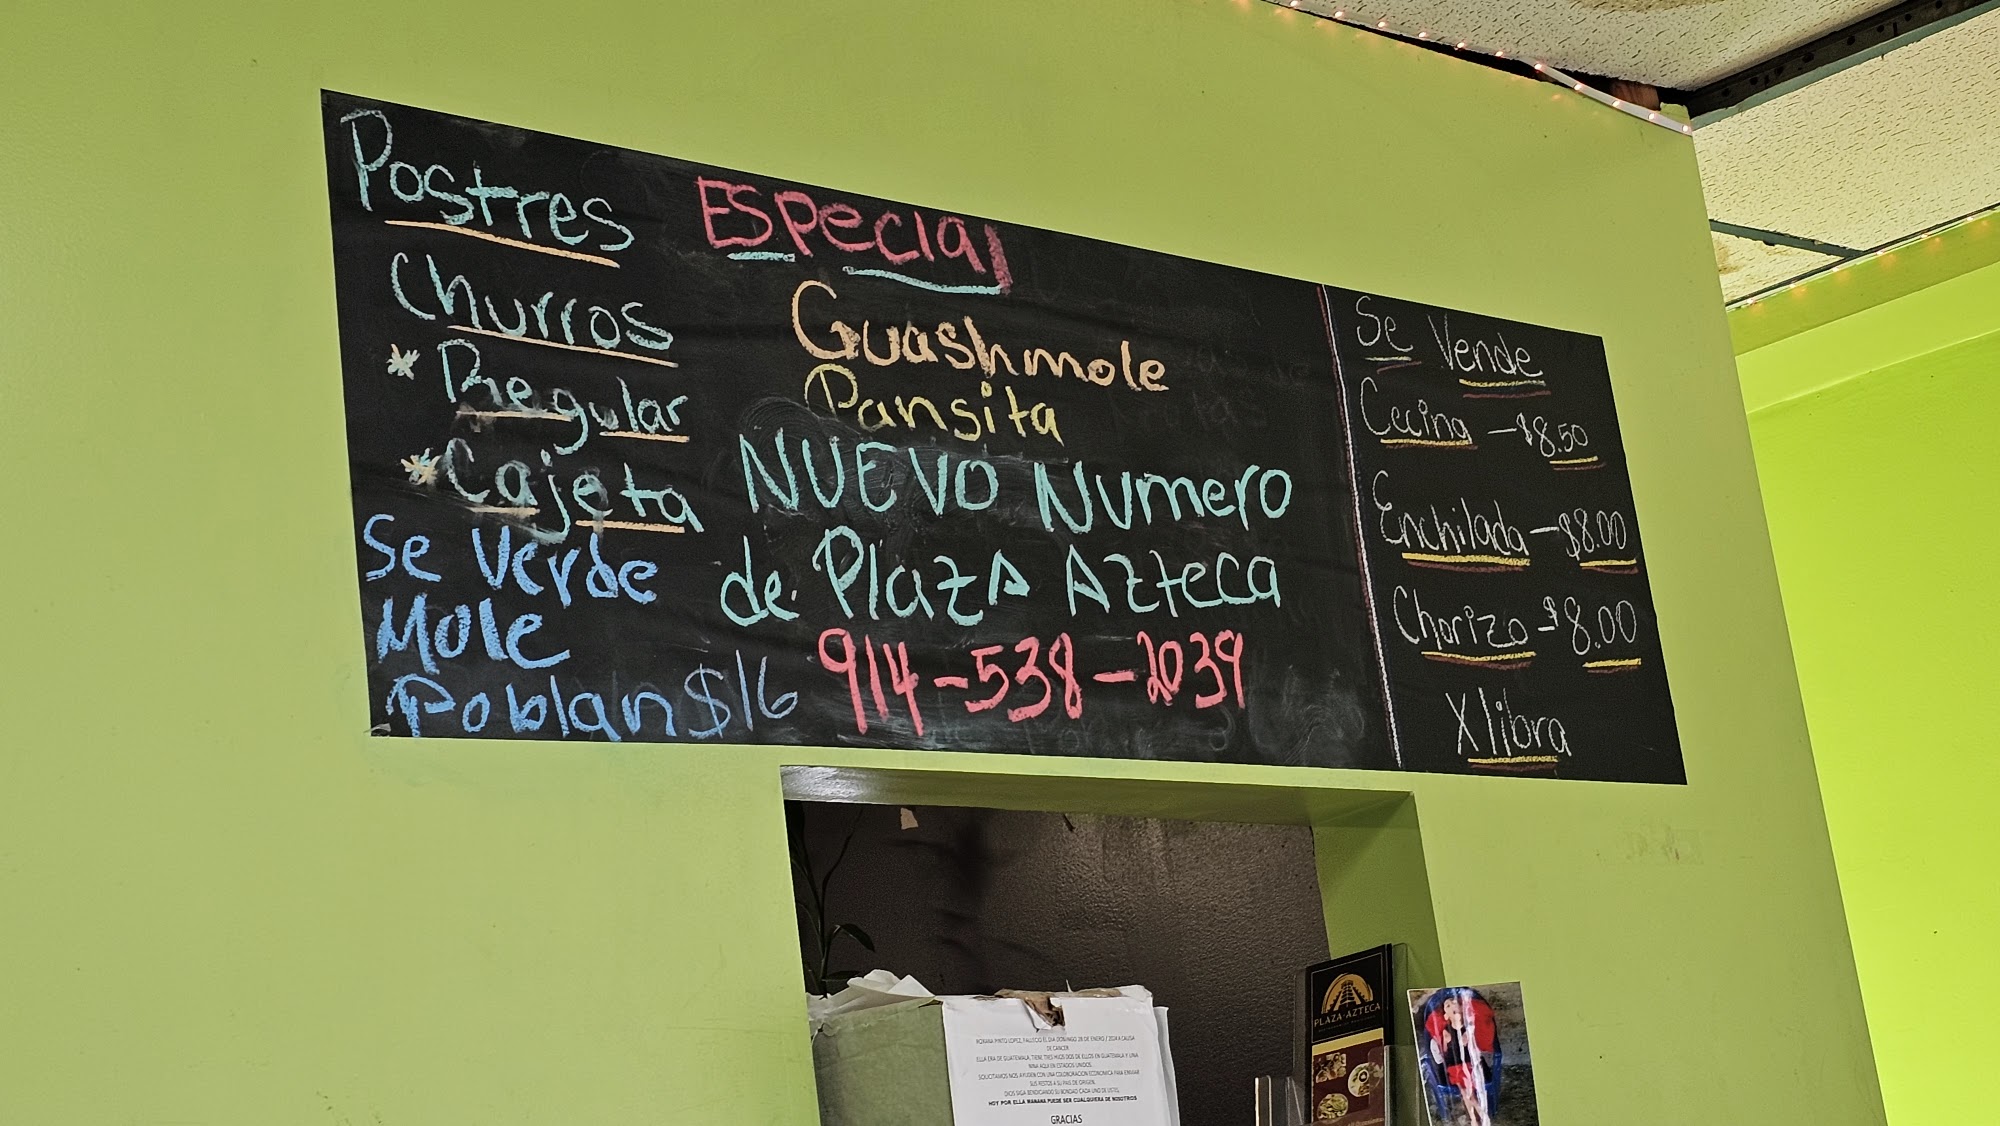 Postres
Churros
* Regular
* Cajeta
Se Verde
Mole
Poblan $16
ESPecial
Guashmole
Pansita
NUEVO Numero
de Plaza Azteca
914-538-2039
Se Vende
Cecina - $8.50
Enchilada - $8.00
Chorizo - $8.00
X libra
PLAZA AZTECA
PINTO LOPEZ, FALLECIO EL DIA DOMINGO 28 DE ENERO / 2024 A CAUSA
DE CANCER
ELLA ERA DE GUATEMALA, TIENE TRES HIJOS DOS DE ELLOS EN GUATEMALA Y UNA
NINA AQUI EN ESTADOS UNIDOS.
SOLICITAMOS NOS AYUDEN CON UNA COLOBORACION ECONOMICA PARA ENVIAR
SUS RESTOS A SU PAIS DE ORIGEN.
DIOS SIGA BENDICIENDO SU BONDAD CADA UNO DE USTED,
HOY POR ELLA MANANA PUEDE SER CUALQUIERA DE NOSOTROS
GRACIAS